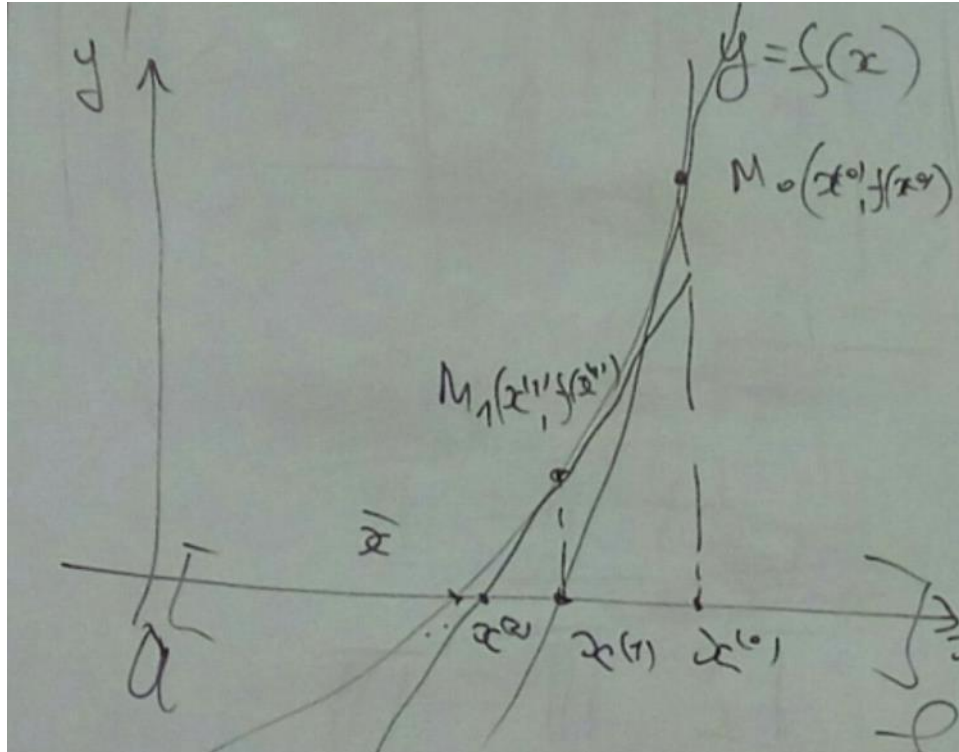 y
y = f(x)
M₀(x⁽⁰⁾, f(x⁽⁰⁾)
M₁(x⁽¹⁾, f(x⁽¹⁾)
x̄
[
]
x⁽²⁾
x⁽¹⁾
x⁽⁰⁾
a